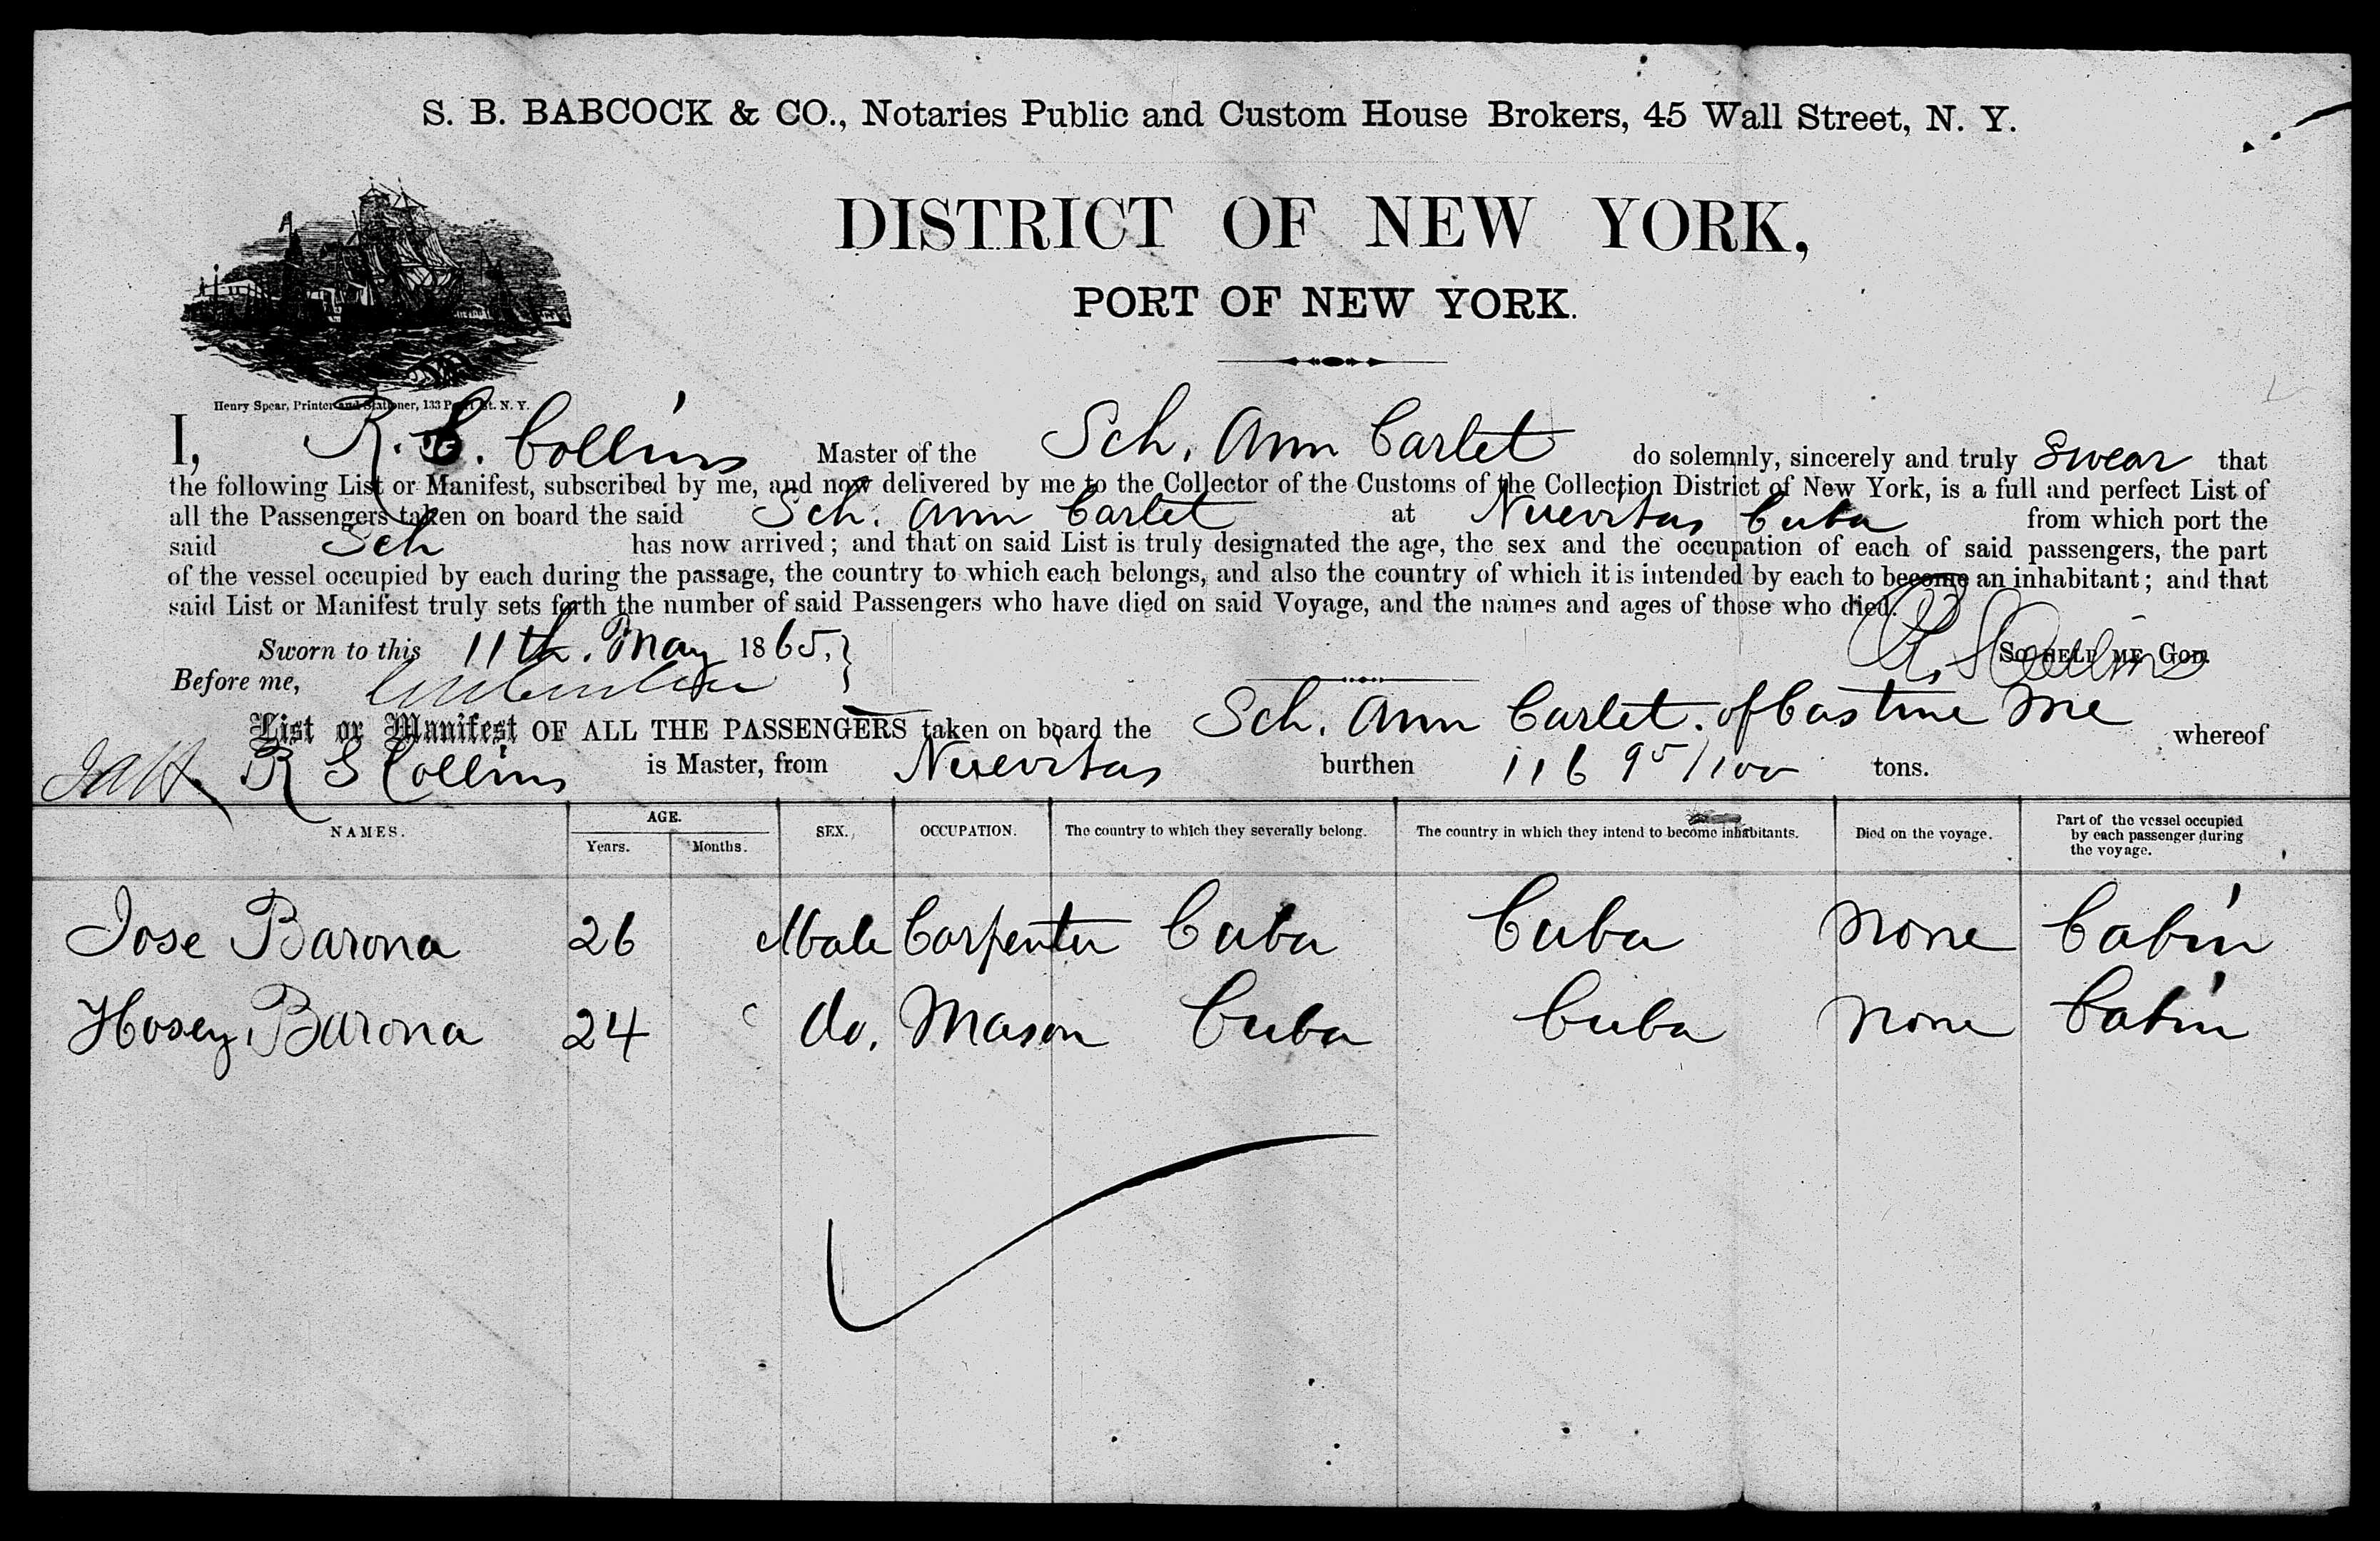 S. B. BABCOCK & CO., Notaries Public and Custom House Brokers, 45 Wall Street, N. Y.
DISTRICT OF NEW YORK,
PORT OF NEW YORK.
Henry Spear, Printer and Stationer, 133 Pearl St. N. Y.
I, R. S. Collins Master of the Sch. Ann Carlet do solemnly, sincerely and truly Swear that
the following List or Manifest, subscribed by me, and now delivered by me to the Collector of the Customs of the Collection District of New York, is a full and perfect List of
all the Passengers taken on board the said Sch. Ann Carlet at Nuevitas Cuba from which port the
said Sch has now arrived; and that on said List is truly designated the age, the sex and the occupation of each of said passengers, the part
of the vessel occupied by each during the passage, the country to which each belongs, and also the country of which it is intended by each to become an inhabitant; and that
said List or Manifest truly sets forth the number of said Passengers who have died on said Voyage, and the names and ages of those who died.
Sworn to this 11th. May 1865, So help me God.
R. S Collins
Before me,
List or Manifest OF ALL THE PASSENGERS taken on board the Sch. Ann Carlet. of Castine Me whereof
R S Collins is Master, from Nuevitas burthen 116 95/100 tons.
NAMES. AGE. Years. Months. SEX. OCCUPATION. The country to which they severally belong. The country in which they intend to become inhabitants. Died on the voyage. Part of the vessel occupied by each passenger during the voyage.
Jose Barona 26 Male Carpenter Cuba Cuba None Cabin
Hosey Barona 24 do. Mason Cuba Cuba None Cabin